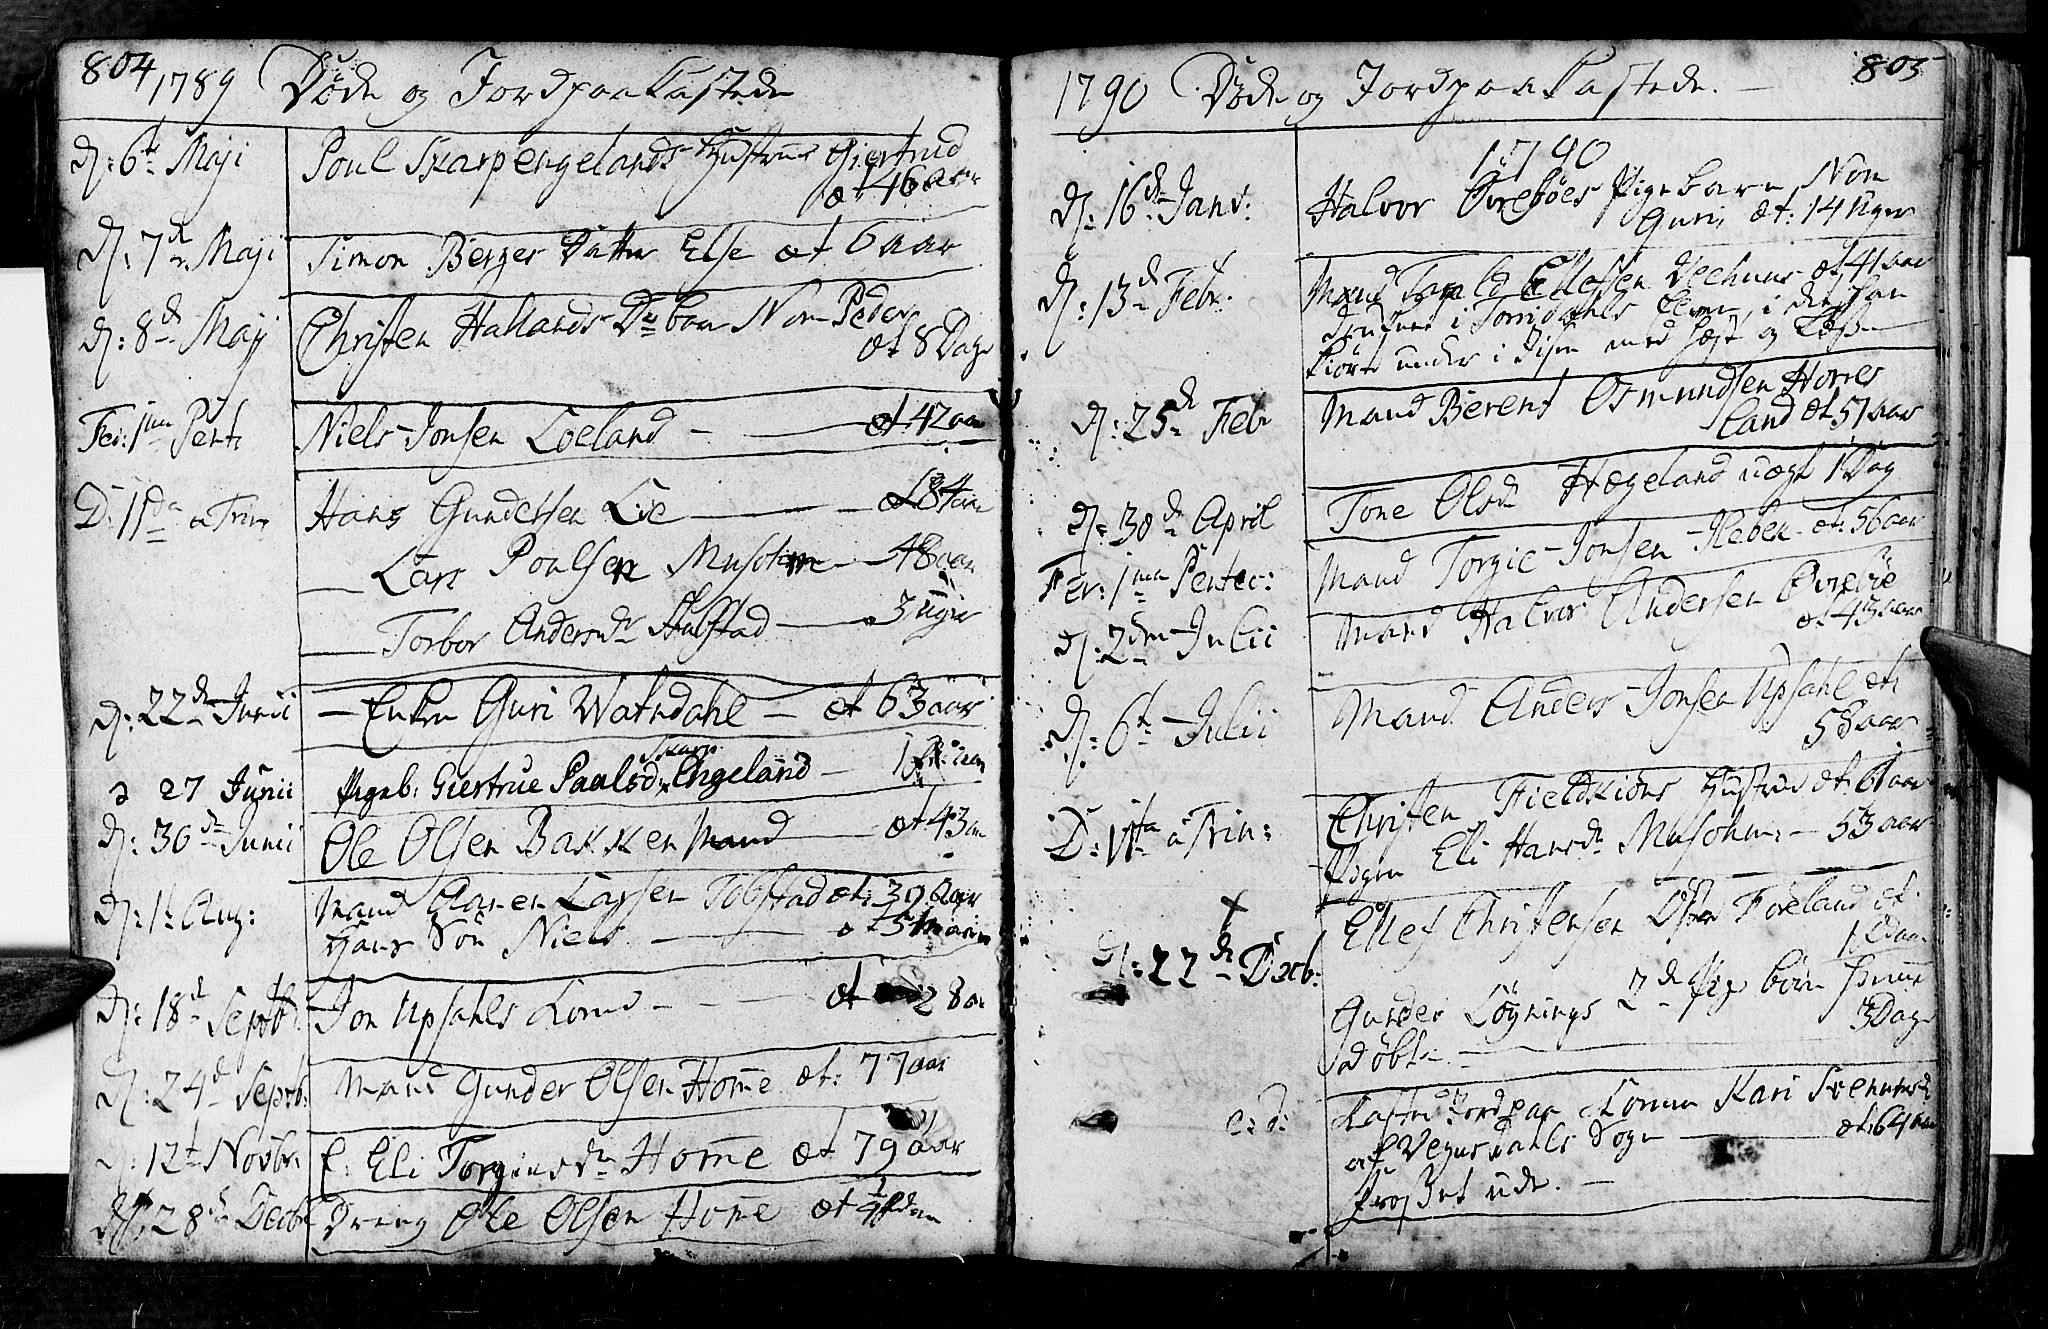 804 1789 Døde og Jordpaakastede
d: 6t Maji Poul Skarpengelands Hustrue Giertrud
æt 46 aar
d: 7de Maji Simon Berges Datter Else æt 6 aar
d: 8de Maji Christen Hallands Dr barn Nom Peder
æt 8 Dage
Fer: 1ma Pent: Niels Jonsen Loeland — æt 42 aar
D: 11da a Trin Hans Gundersen Lie — 84 aar
Lars Poulsen — 48 aar
Torbor Andersdr — 3 uger
d: 22de Junii Enken Guri Watndahl — æt 63 aar
27 Junii Pigeb: Giertrue Paalsdr Skarp Engeland — 1
d: 30de Junii Ole Olsen Bakken Mand — æt 43 aar
d: 1t Aug: Mand Aanen Larsen Tobstad æt: 39 aar
Hans Søn Niels —
d: 18de Septbr Jon Upsahls Kone — æt 28 aar
d: 24de Septbr: Mand Gunder Olsen Home æt: 77 aar
d: 12t Novbr: E: Eli Torgiusdr Home æt 79 aar
d: 28de Decbr Dreng Ole Olsen Home æt
1790 Døde og Jordpaakastede. — 805
1790
d: 16de Janv: Halvor Øvrebøes Pigebarn, Nom
Guri, æt: 14 Uger
d: 13de Febr: Mand Ellefsen Veehuus æt 41 aar
druknet i Torridahls Elven, i det han
kiørte under i Iisen med Hest og
d: 25de Febr Mand Berent Osmundsen Homes
land æt 57 aar
d: 30de April Tone Olsdr Hægeland uægt 1 Dag
Fer: 1ma Pentec: Mand Torgie Jonsen Reben æt: 56 aar
d: 2den Julii Mand Halvor Andersen Øvrebøe
æt 43 aar
d: 6t Julii Mand Anders Jonsen Upsahl æt:
58 aar
Christen Fieldskiøns Hustrue æt: 61 aar
D: 11ta a Trin: Pigen Eli Hansdr — 53 aar
Ellef Christensen Føreland æt:
d: 22de Decb: Gunder Løgnings 2de Pige børn hiemme
døbt — 3 Dage
e: d: Kastet Jordpaa Konen Kari
af Vegusdahls Sogn — æt: 64 aar
Prostet ude. —